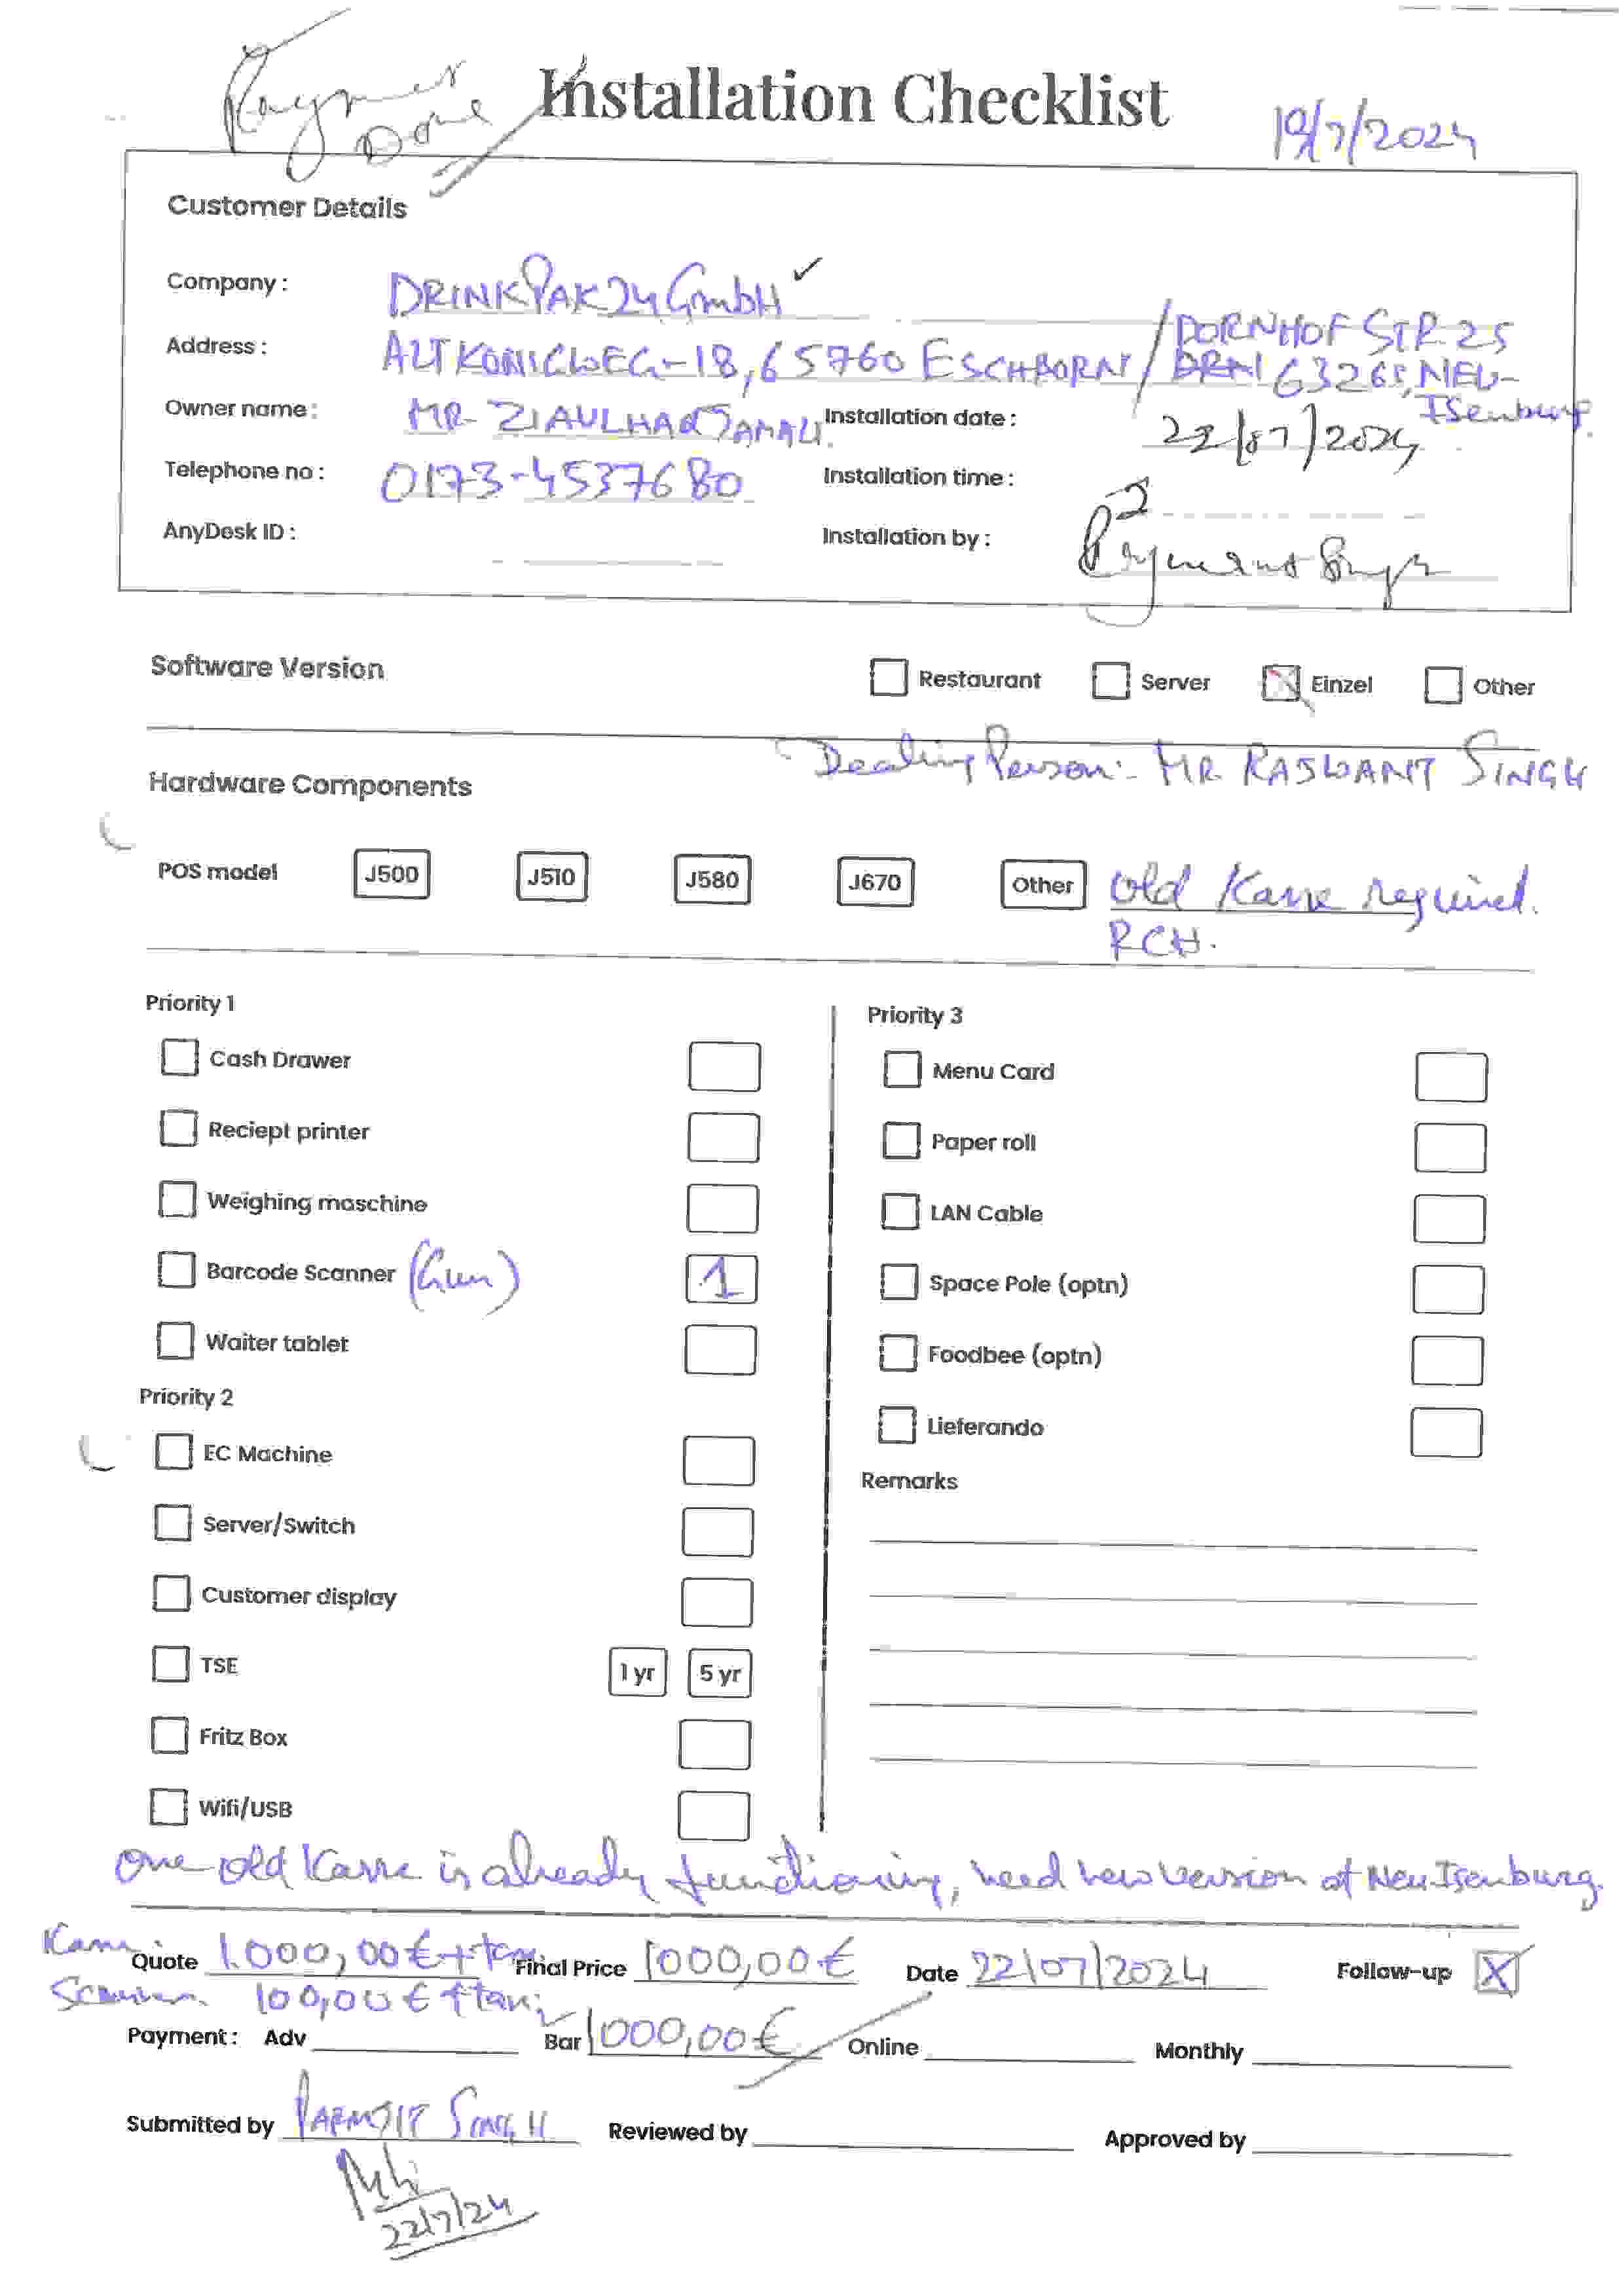 Payment Done
Installation Checklist
19/7/2024
Customer Details
Company : DRINKPAK24 GmbH ✓
Address : ALTKÖNIGWEG-18, 65760 ESCHBORN / DORNHOF STR 25
63263, NEU-
Isenburg
Owner name : MR ZIAULHAQ JAMALI Installation date : 22/07/2024
Telephone no : 0173-4537680 Installation time :
AnyDesk ID : Installation by : Singh
Software Version Restaurant Server Einzel Other
Dealing Person:- MR RASWANT SINGH
Hardware Components
POS model J500 J510 J580 J670 Other old Kasse required.
RCH.
Priority 1
Cash Drawer
Reciept printer
Weighing maschine
Barcode Scanner (Gun) 1
Waiter tablet
Priority 2
EC Machine
Server/Switch
Customer display
TSE 1 yr 5 yr
Fritz Box
Wifi/USB
Priority 3
Menu Card
Paper roll
LAN Cable
Space Pole (optn)
Foodbee (optn)
Lieferando
Remarks
One old Kasse is already functioning, need new version at Neu Isenburg.
Kasse Quote 1.000,00€ + tax Final Price 1000,00€ Date 22/07/2024 Follow-up X
Scanner 100,00€ + tax
Payment : Adv Bar 1000,00€ Online Monthly
Submitted by PARMJIT SINGH Reviewed by Approved by
22/7/24